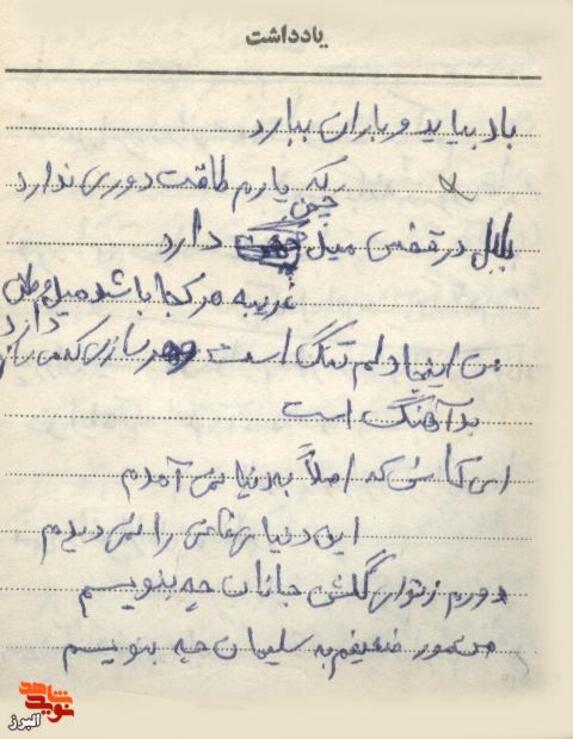 یادداشت
باد بیاید و باران ببارد
که یارم طاقت دوری ندارد
بلبل در قفس میل چمن دارد
غریبه هر کجا باشد میل وطن
دارد
من اینجا دلم تنگ است هر سازی که می‌زنم
بدآهنگ است
ای کاش که اصلاً به دنیا نمی آمدم
این دنیا را نمی دیدم
دورم ز تو ای گلشن جانان چه بنویسم
من مور ضعیفم به سلیمان چه بنویسم
نوید شاهد
البرز